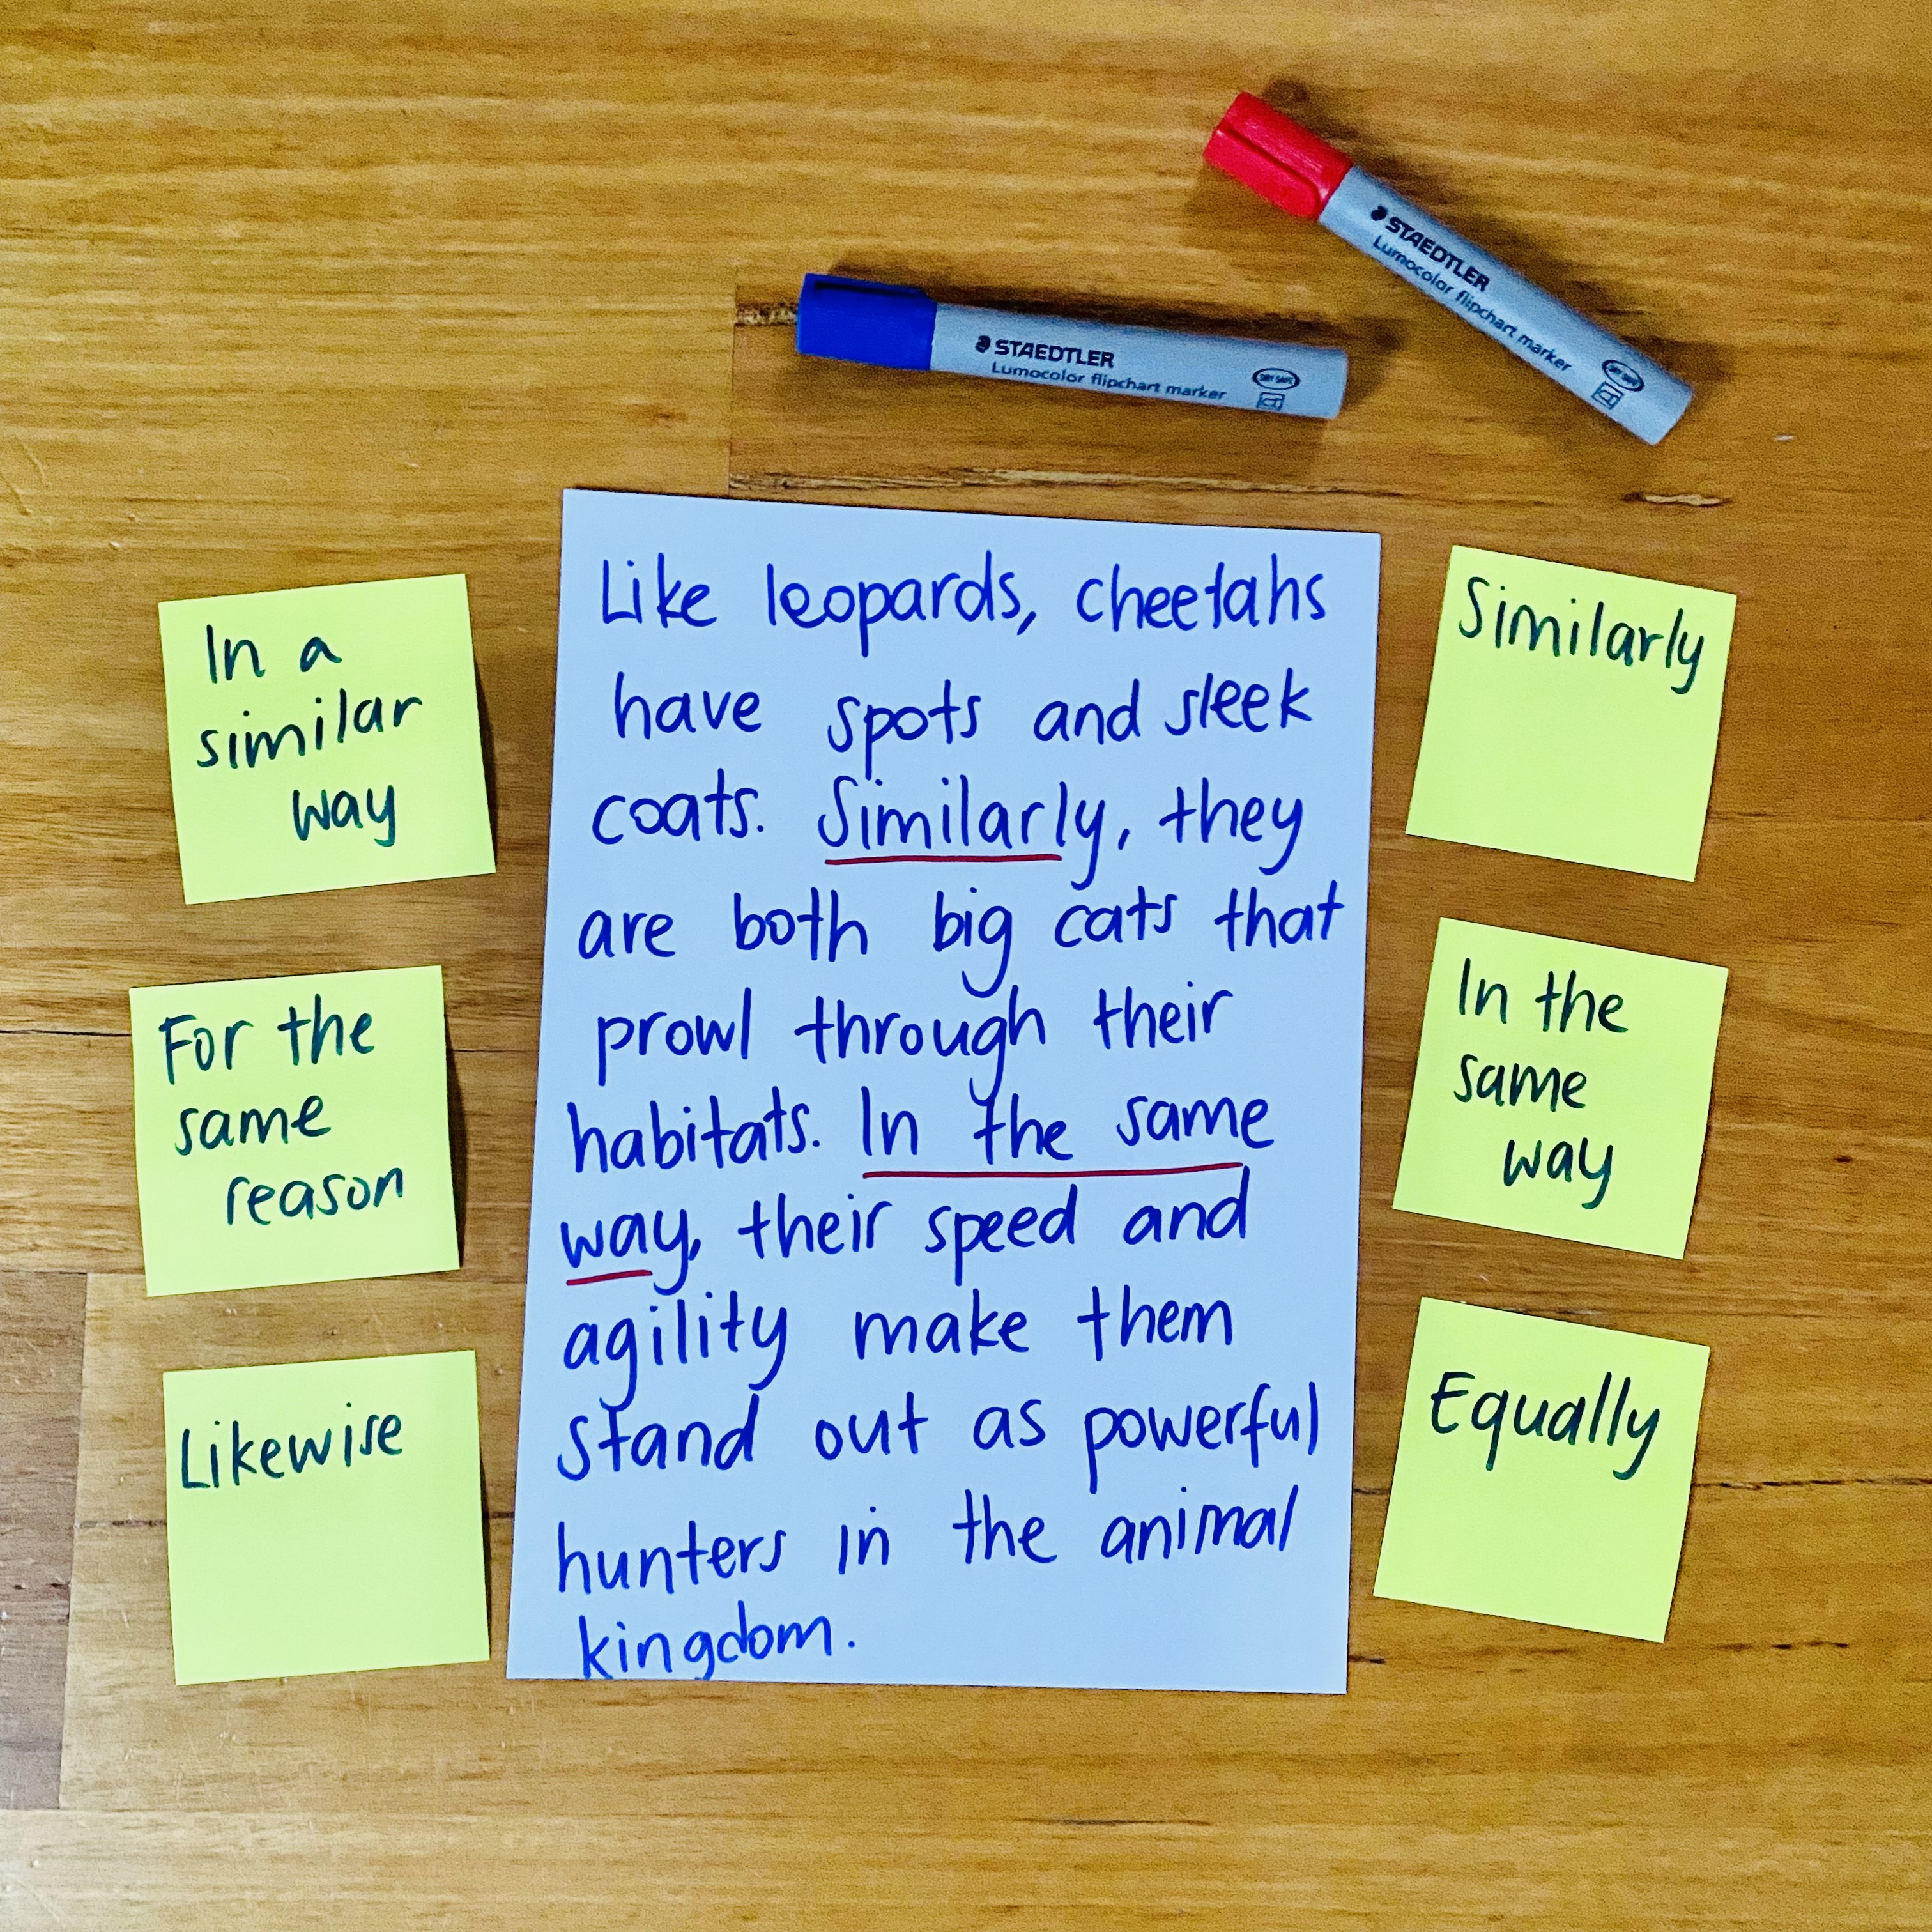 STAEDTLER
Lumocolor flipchart marker
DRY SAFE
STAEDTLER
Lumocolor flipchart marker
DRY SAFE
In a
similar
way
For the
same
reason
Likewise
Like leopards, cheetahs
have spots and sleek
coats. Similarly, they
are both big cats that
prowl through their
habitats. In the same
way, their speed and
agility make them
stand out as powerful
hunters in the animal
kingdom.
Similarly
In the
same
way
Equally